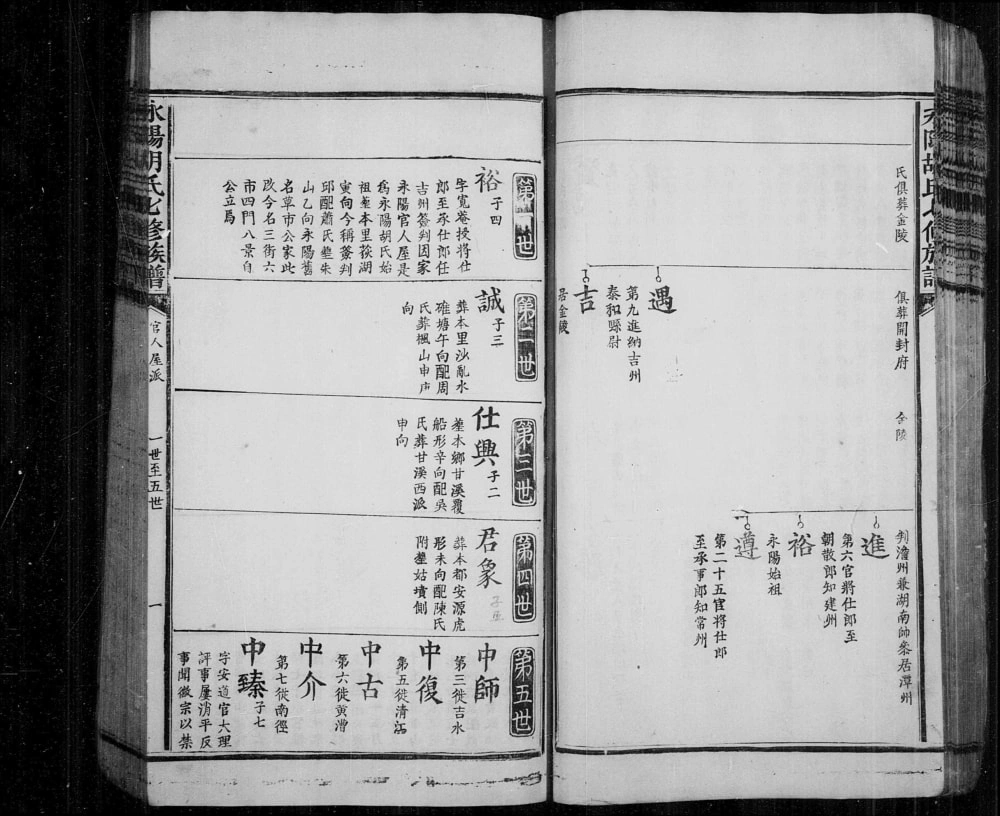 氏俱葬金陵
俱葬開封府
金陵
判澹州兼湖南帥叅居潭州
遇
第九進納吉州
泰和縣尉
吉
居金陵
進
第六官將仕郎至
朝散郎知建州
裕
永陽始祖
遵
第二十五官將仕郎
至承事郎知常州
第一世
裕 子四
字寬菴授將仕
郎至承仕郎任
吉州簽判因家
永陽官人屋是
為永陽胡氏始
祖塟本里荻湖
寅向今稱簽判
邱配蕭氏塟朱
山乙向永陽舊
名草市公家此
改今名三街六
市四門八景自
公立焉
第二世
誠 子三
葬本里沙亂水
碓塘午向配周
氏葬楓山申庚
向
第三世
仕興 子二
塟本鄉甘溪覆
船形辛向配吳
氏葬甘溪西派
申向
第四世
君象 子五
葬本都安源虎
形未向配陳氏
附塟姑墳側
第五世
中師
第三徙吉水
中復
第五徙清江
中古
第六徙黃漕
中介
第七徙南徑
中臻 子七
字安道官大理
評事屢消平反
事聞徽宗以禁
永陽胡氏七修族譜
官人屋派
一世至五世
一